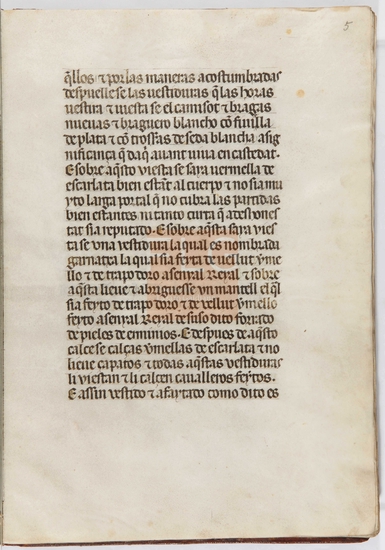 5
q̃llos ⁊ por las maneras acostumbradas
despuelle se las vestiduras q̃ las horas
vestra ⁊ viesta se el camisot ⁊ bragas
nueuas ⁊ braguero blancho cõ fiuilla
de plata ⁊ cõ trossas de seda blancha a sig
nificança q̃ da q̃ auant uiua en castedat.
E sobre aq̃sto viesta se saya vermella de
escarlata bien estãt al cuerpo ⁊ no sia mu
yto larga por tal q̃ no cubra las partidas
bien estantes ni tanto curta q̃ a desones
tat sia reputado. E sobre aq̃sta saya vies
ta se vna vestidura la qual es nombrada
garnatxa la qual sia feyta de vellut ṽme
llo ⁊ de trapo doro a senyal Reyal ⁊ sobre
aq̃sta lieue ⁊ abriguesse vn mantell el q̃l
sia feyto de trapo doro ⁊ de vellut ṽmello
feyto a senyal Reyal de suso dito forrado
de pieles de erminios. E despues de aq̃sto
calce se calças ṽmellas de escarlata ⁊ no
lieue çapatos ⁊ todas aq̃stas vestiduras
li viestan ⁊ li calcen caualleros feytos.
E assin vestido ⁊ afaytado como dito es